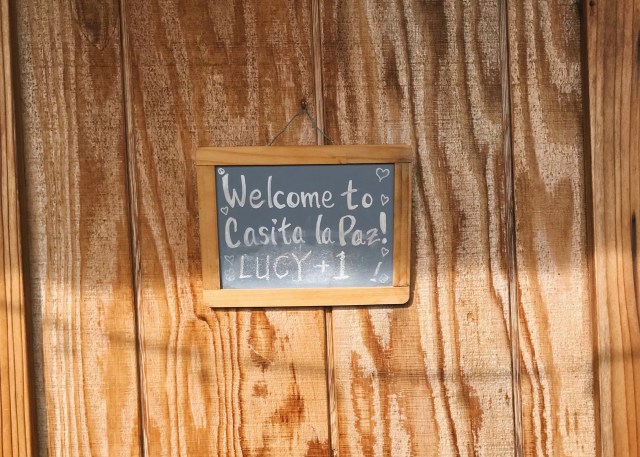 Welcome to
Casita la Paz!
LUCY +1